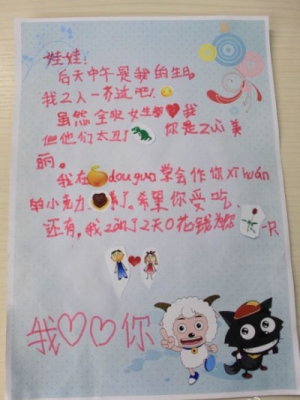 娃娃:
后天中午是我的生日
我2人一齐过吧!
虽然全班女生都 我
但他们太丑了 你是zui美
丽。
我在 douguo学会作你xihuán
的小 力 了。希 你 吃
还有,我 了2天0花钱 你 一只
我♡♡你